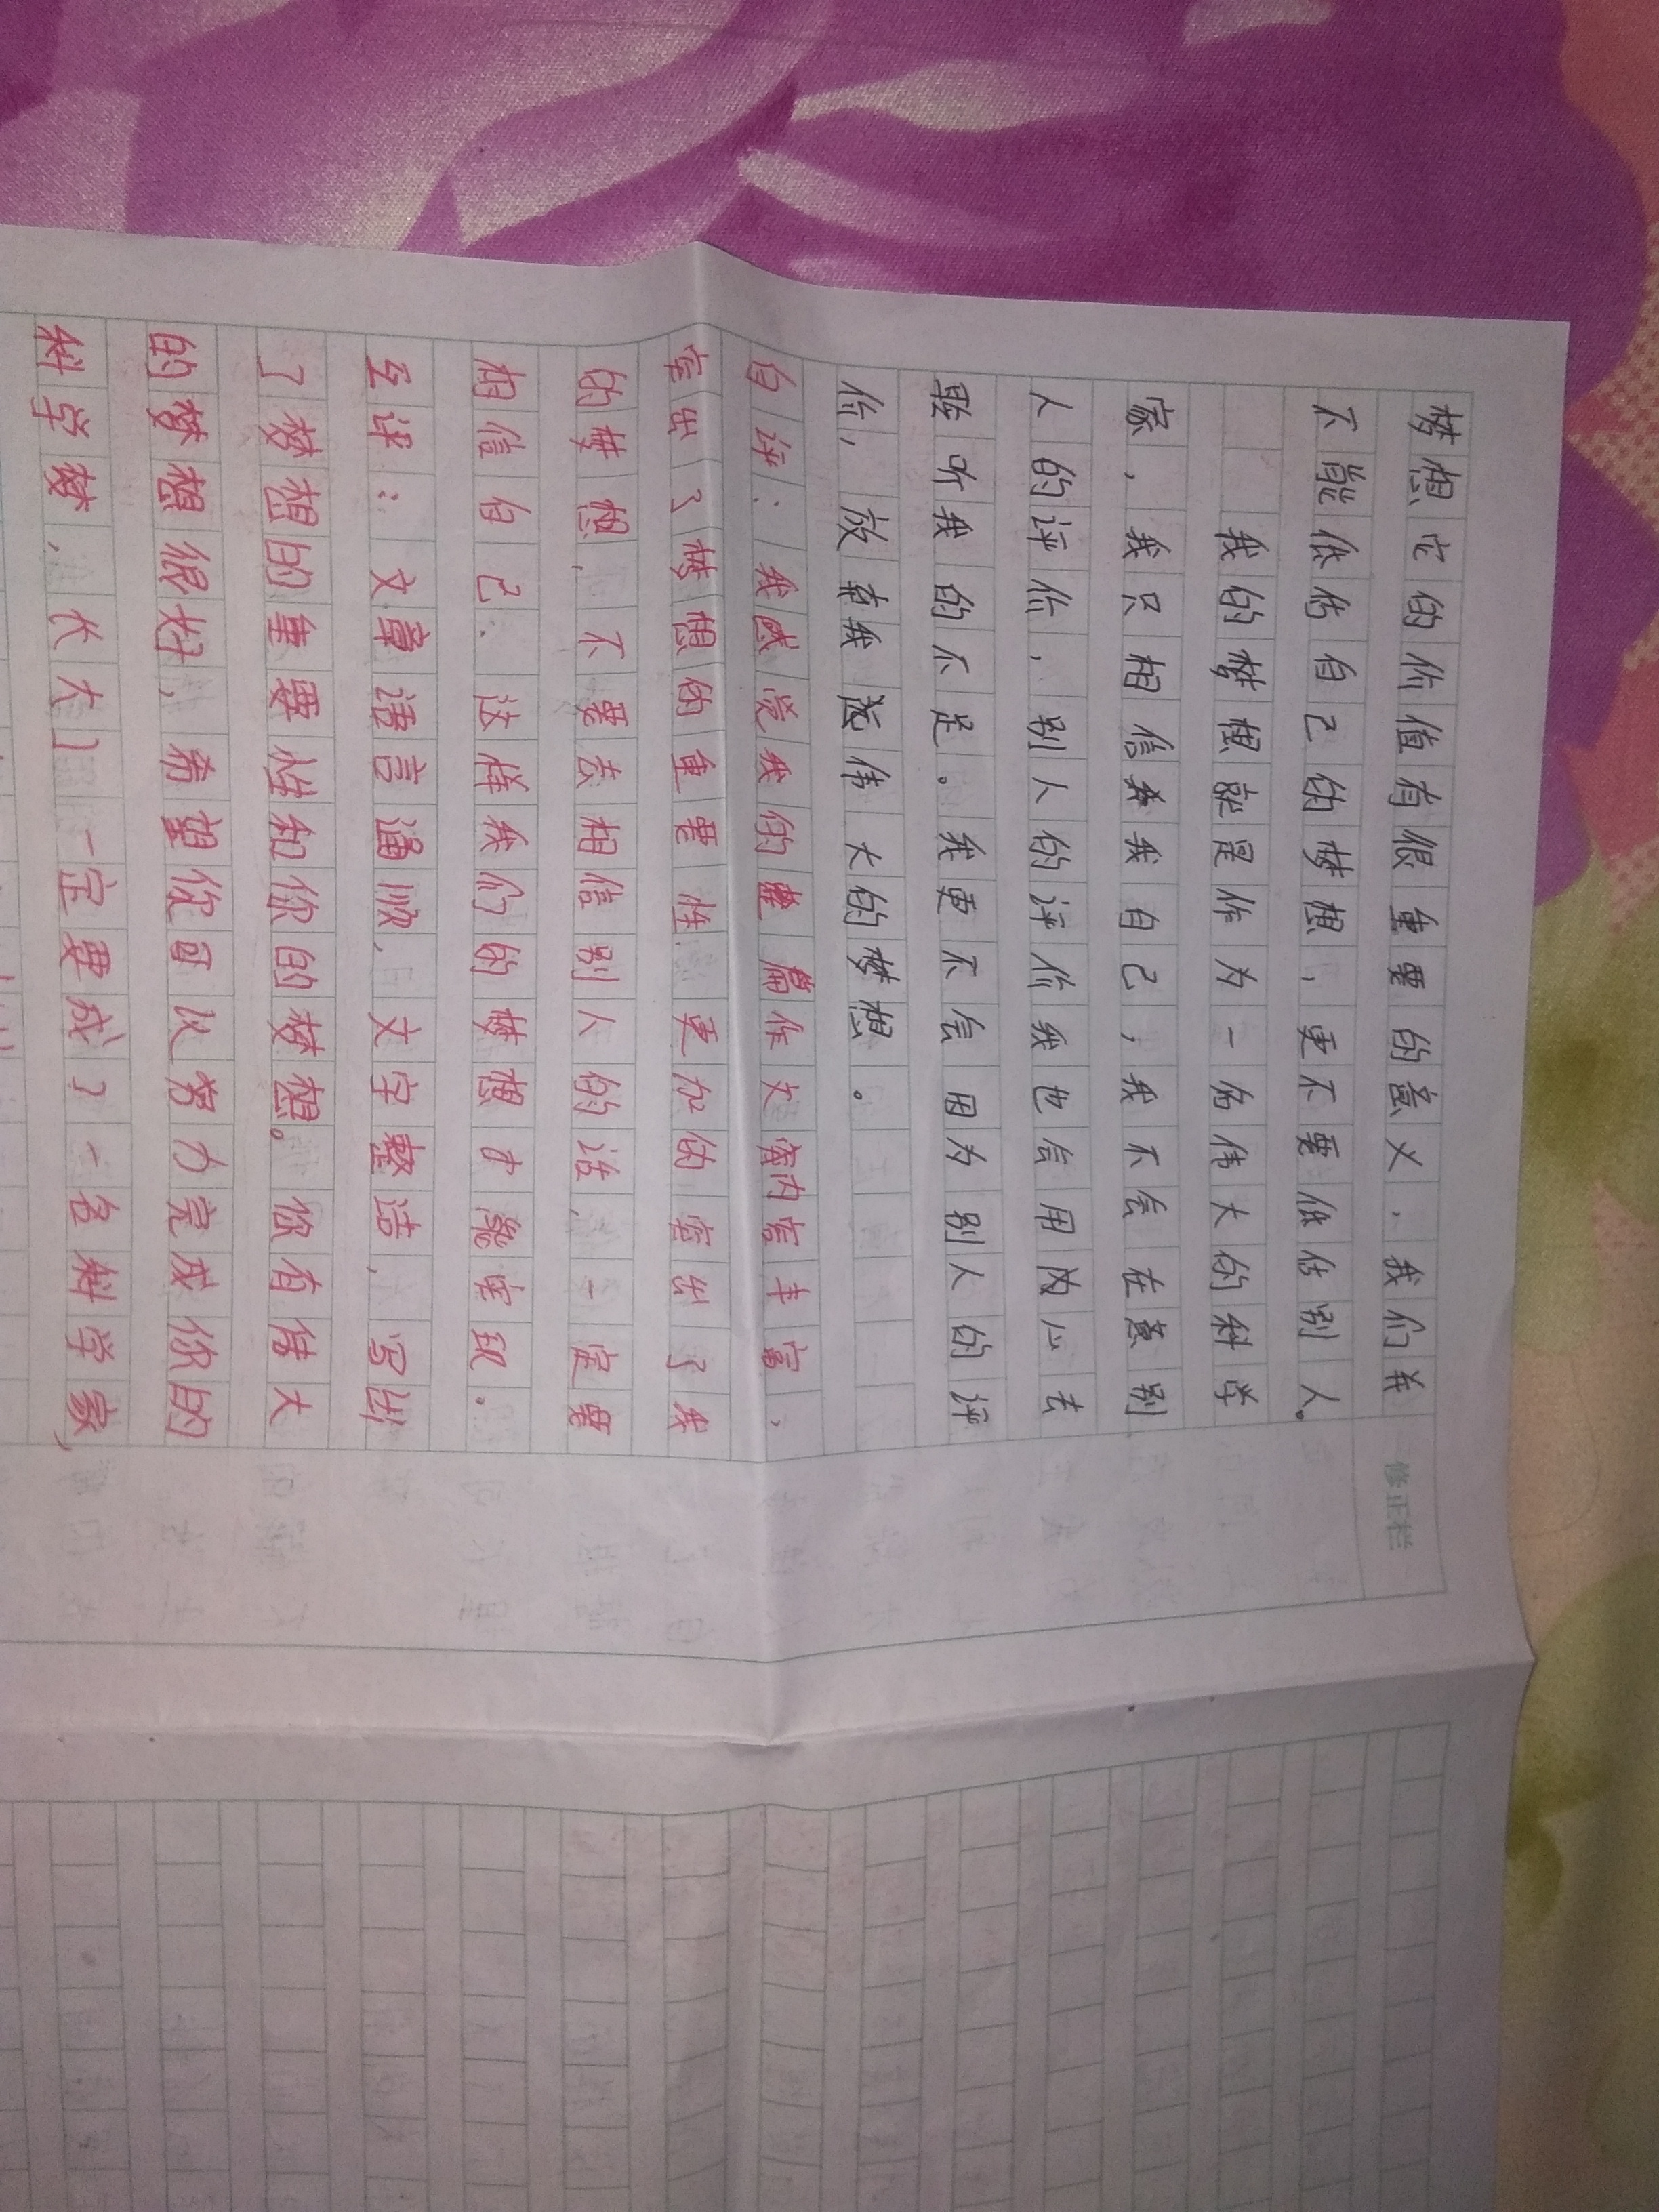 梦想它的价值有很重要的意义，我们并
不能低估自己的梦想，更不要低估别人。
我的梦想就是作为一名伟大的科学
家，我只相信我自己，我不会在意别
人的评价，别人的评价我也会用内心去
聆听我的不足。我更不会因为别人的评
价，放弃我伟大的梦想。
自评：我感觉我的这篇作文内容丰富，
写出了梦想的重要性更加的写出了我
的梦想，不要去相信别人的话，一定要
相信自己，这样我们的梦想才能实现。
互评：文章语言通顺，文字整洁，写出
了梦想的重要性和你的梦想。你有伟大
的梦想很好，希望你可以努力完成你的
科学梦，长大一定要成了一名科学家，
修正栏